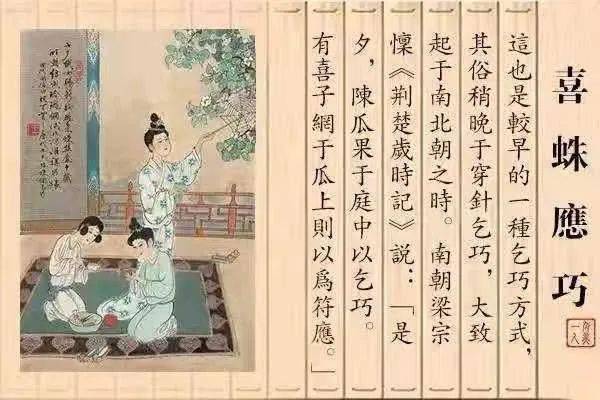 喜蛛應巧
這也是較早的一種乞巧方式，
其俗稍晚于穿針乞巧，大致
起于南北朝之時。南朝梁宗
懍《荆楚歲時記》説：「是
夕，陳瓜果于庭中以乞巧。
有喜子網于瓜上則以爲符應。」